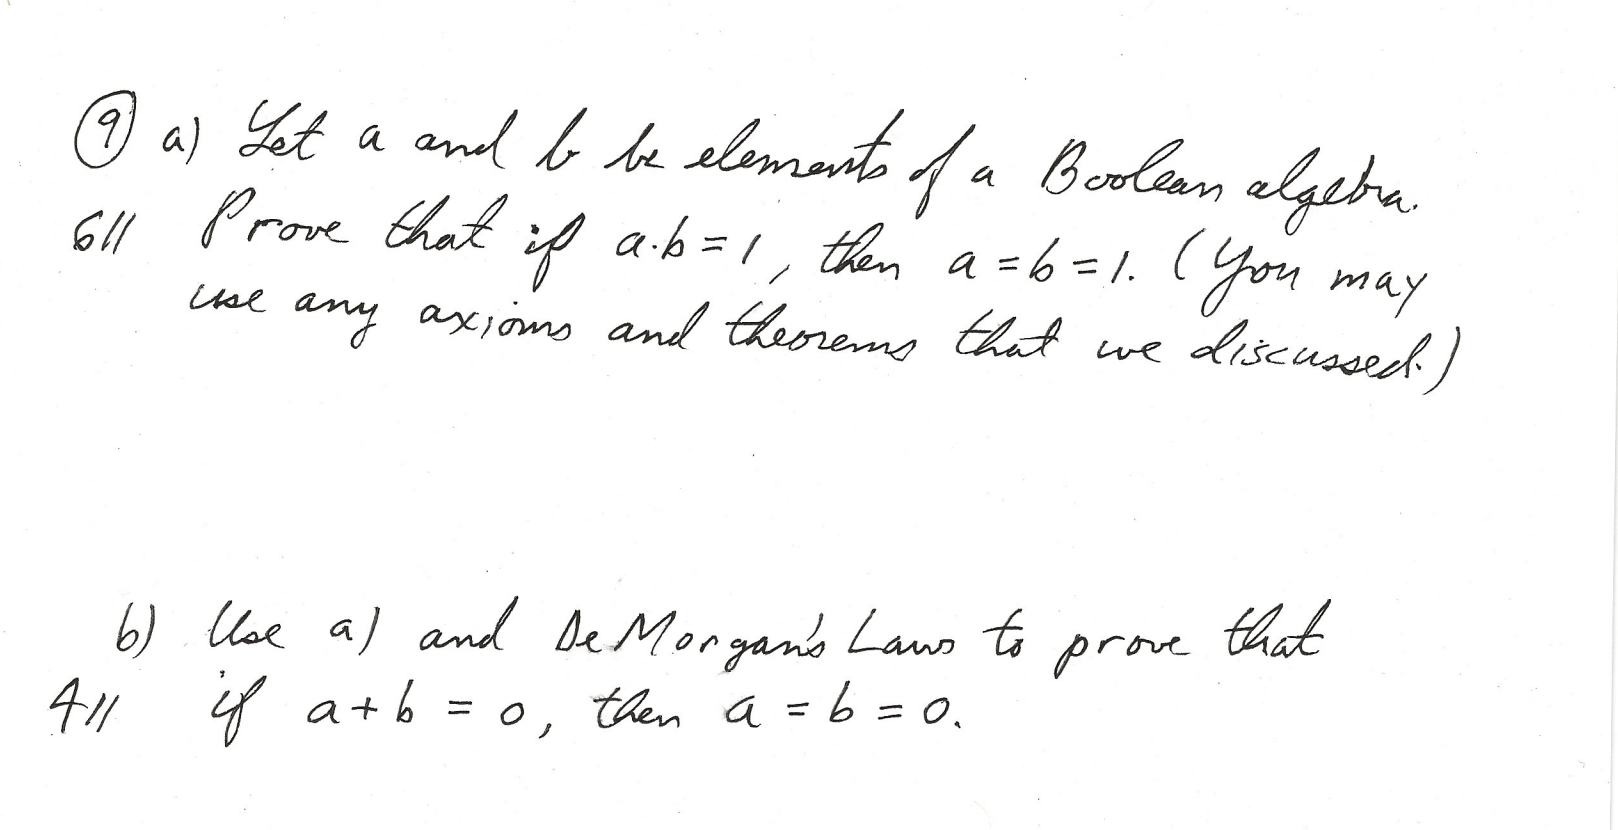 9 a) Let a and b be elements of a Boolean algebra.
6// Prove that if a·b=1, then a=b=1. (You may
use any axioms and theorems that we discussed.)
b) Use a) and DeMorgan's Laws to prove that
4// if a+b=0, then a=b=0.